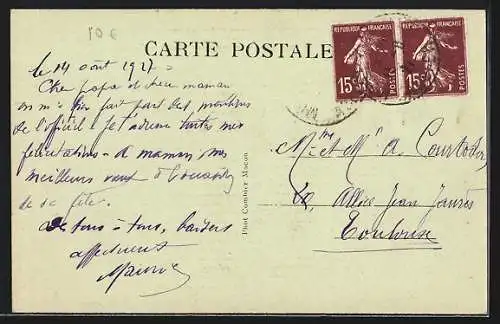 10 €
CARTE POSTALE
REPUBLIQUE FRANÇAISE
15
POSTES
REPUBLIQUE FRANÇAISE
15
POSTES
le 14 août 1927
Cher papa et chère maman
on m'a fait part des
de l'officiel. Je t'adresse toutes mes
félicitations. A maman mes
meilleurs vœux à l'occasion
de sa fête.
De tous à tous, baisers
affectueux
Maurice
Phot Combier Macon
Mr et Me A. Courtot
Allées Jean Jaurès
Toulouse